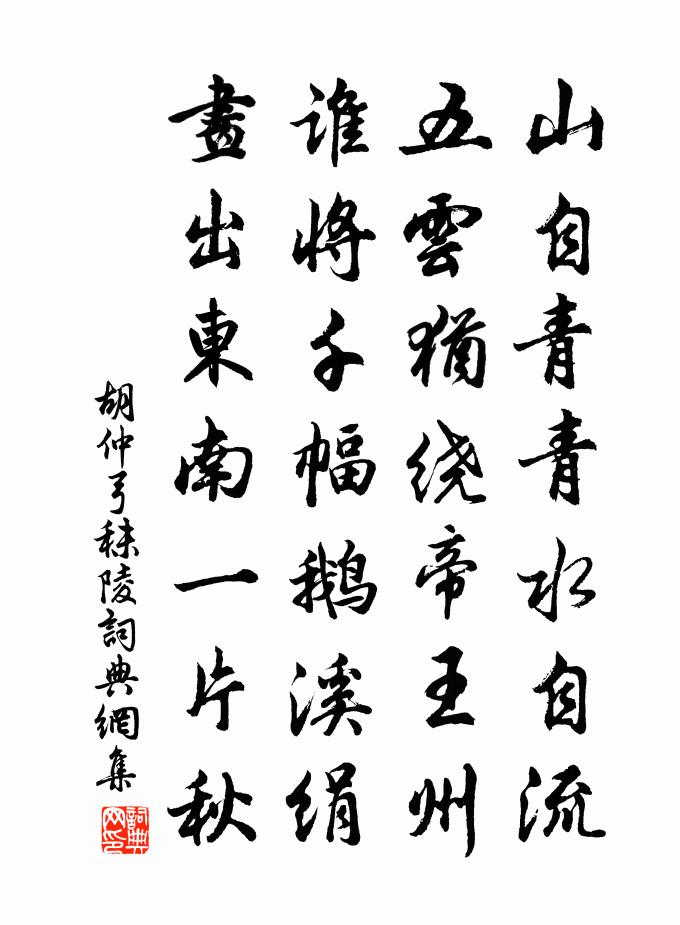 山自青青水自流
五雲猶绕帝王州
誰将千幅鹅溪绢
畫出東南一片秋
胡仲弓秣陵詞典網集
詞典網印